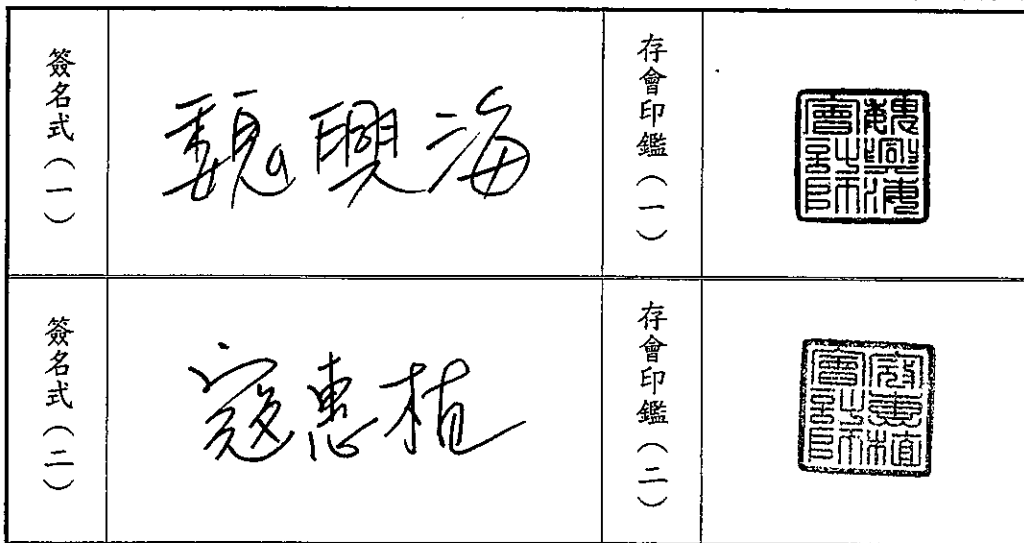 簽名式（一）
魏興海
存會印鑑（一）
魏興海會計師
簽名式（二）
寇惠植
存會印鑑（二）
寇惠植會計師